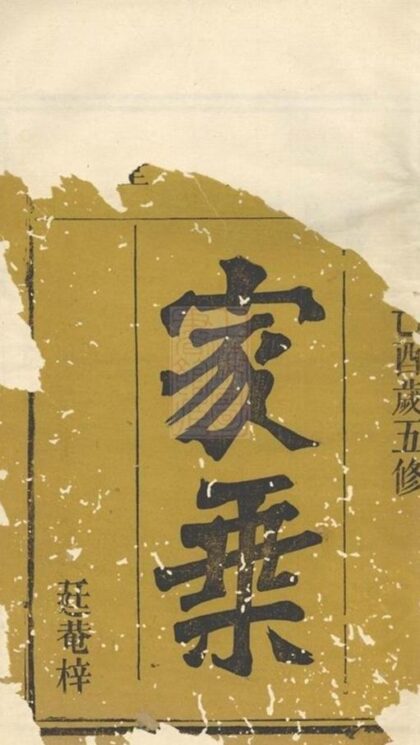 酉歲五修
家乘
菴梓